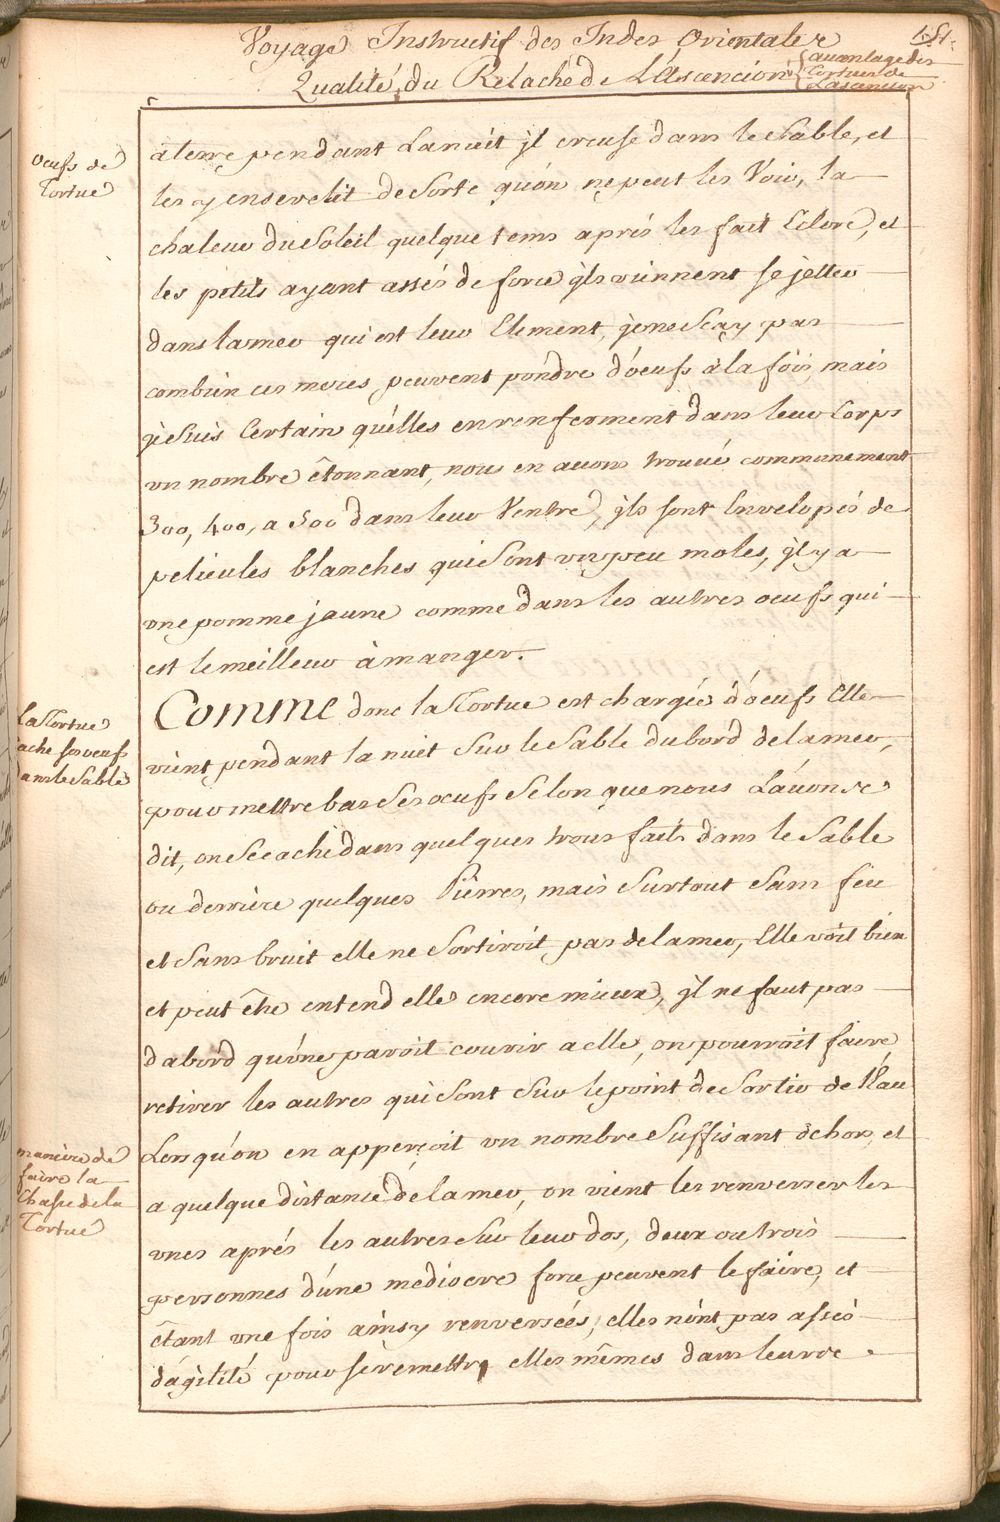 Voyage Instructif des Indes Orientales
151.
Qualité du Relaché de L'Ascencion
avantage des
Tortues de
Lasancion
oeufs de
Tortue
à terre pendant La nuit jl creuse dans le Sable, et
les y ensevelit de Sorte qu'on ne peut les Voir, la
chaleur du Soleil quelque tems aprés les fait Eclore, et
les petits ayant assés de force jls viennent se jetter
dans la mer qui est leur Element, je ne Scay pas
combien ces meres peuvent pondre d'oeufs à la fois, mais
je Suis Certain qu'elles en renferment dans leur Corps
un nombre êtonnant, nous en avons trouvé communement
300, 400, a 500 dans leur Ventre, jls sont Envelopés de
pelicules blanches qui Sont un peu moles, jl y a
une pomme jaune comme dans les autres oeufs qui
est le meilleur à manger.
La Tortue
cache ses oeufs
dans le Sable
Comme donc la Tortue est chargée d'oeufs Elle
vient pendant la nuit Sur le Sable du bord de la mer,
pour mettre bas Ses oeufs Selon que nous L'avons
dit, on Se cache dans quelques trous faits dans le Sable
ou derriere quelques Pierres, mais Surtout Sans feu
et Sans bruit elle ne Sortiroit pas de la mer, Elle voit bien
et peut être entend elle encore mieux, jl ne faut pas
dabord qu'une paroit courir a elle, on pourroit faire
retirer les autres qui Sont Sur le point de Sortir de l'eau
maniere de
faire la
Chasse de la
Tortue
Lors qu'on en apperçoit un nombre Suffisant dehors, et
a quelque distance de la mer, on vient les renverser les
unes aprés les autres Sur leur dos, deux ou trois
personnes d'une mediocre force peuvent le faire, et
êtant une fois ainsy renversées, elles n'ont pas assés
d'agilité pour se remettre elles mêmes dans leur